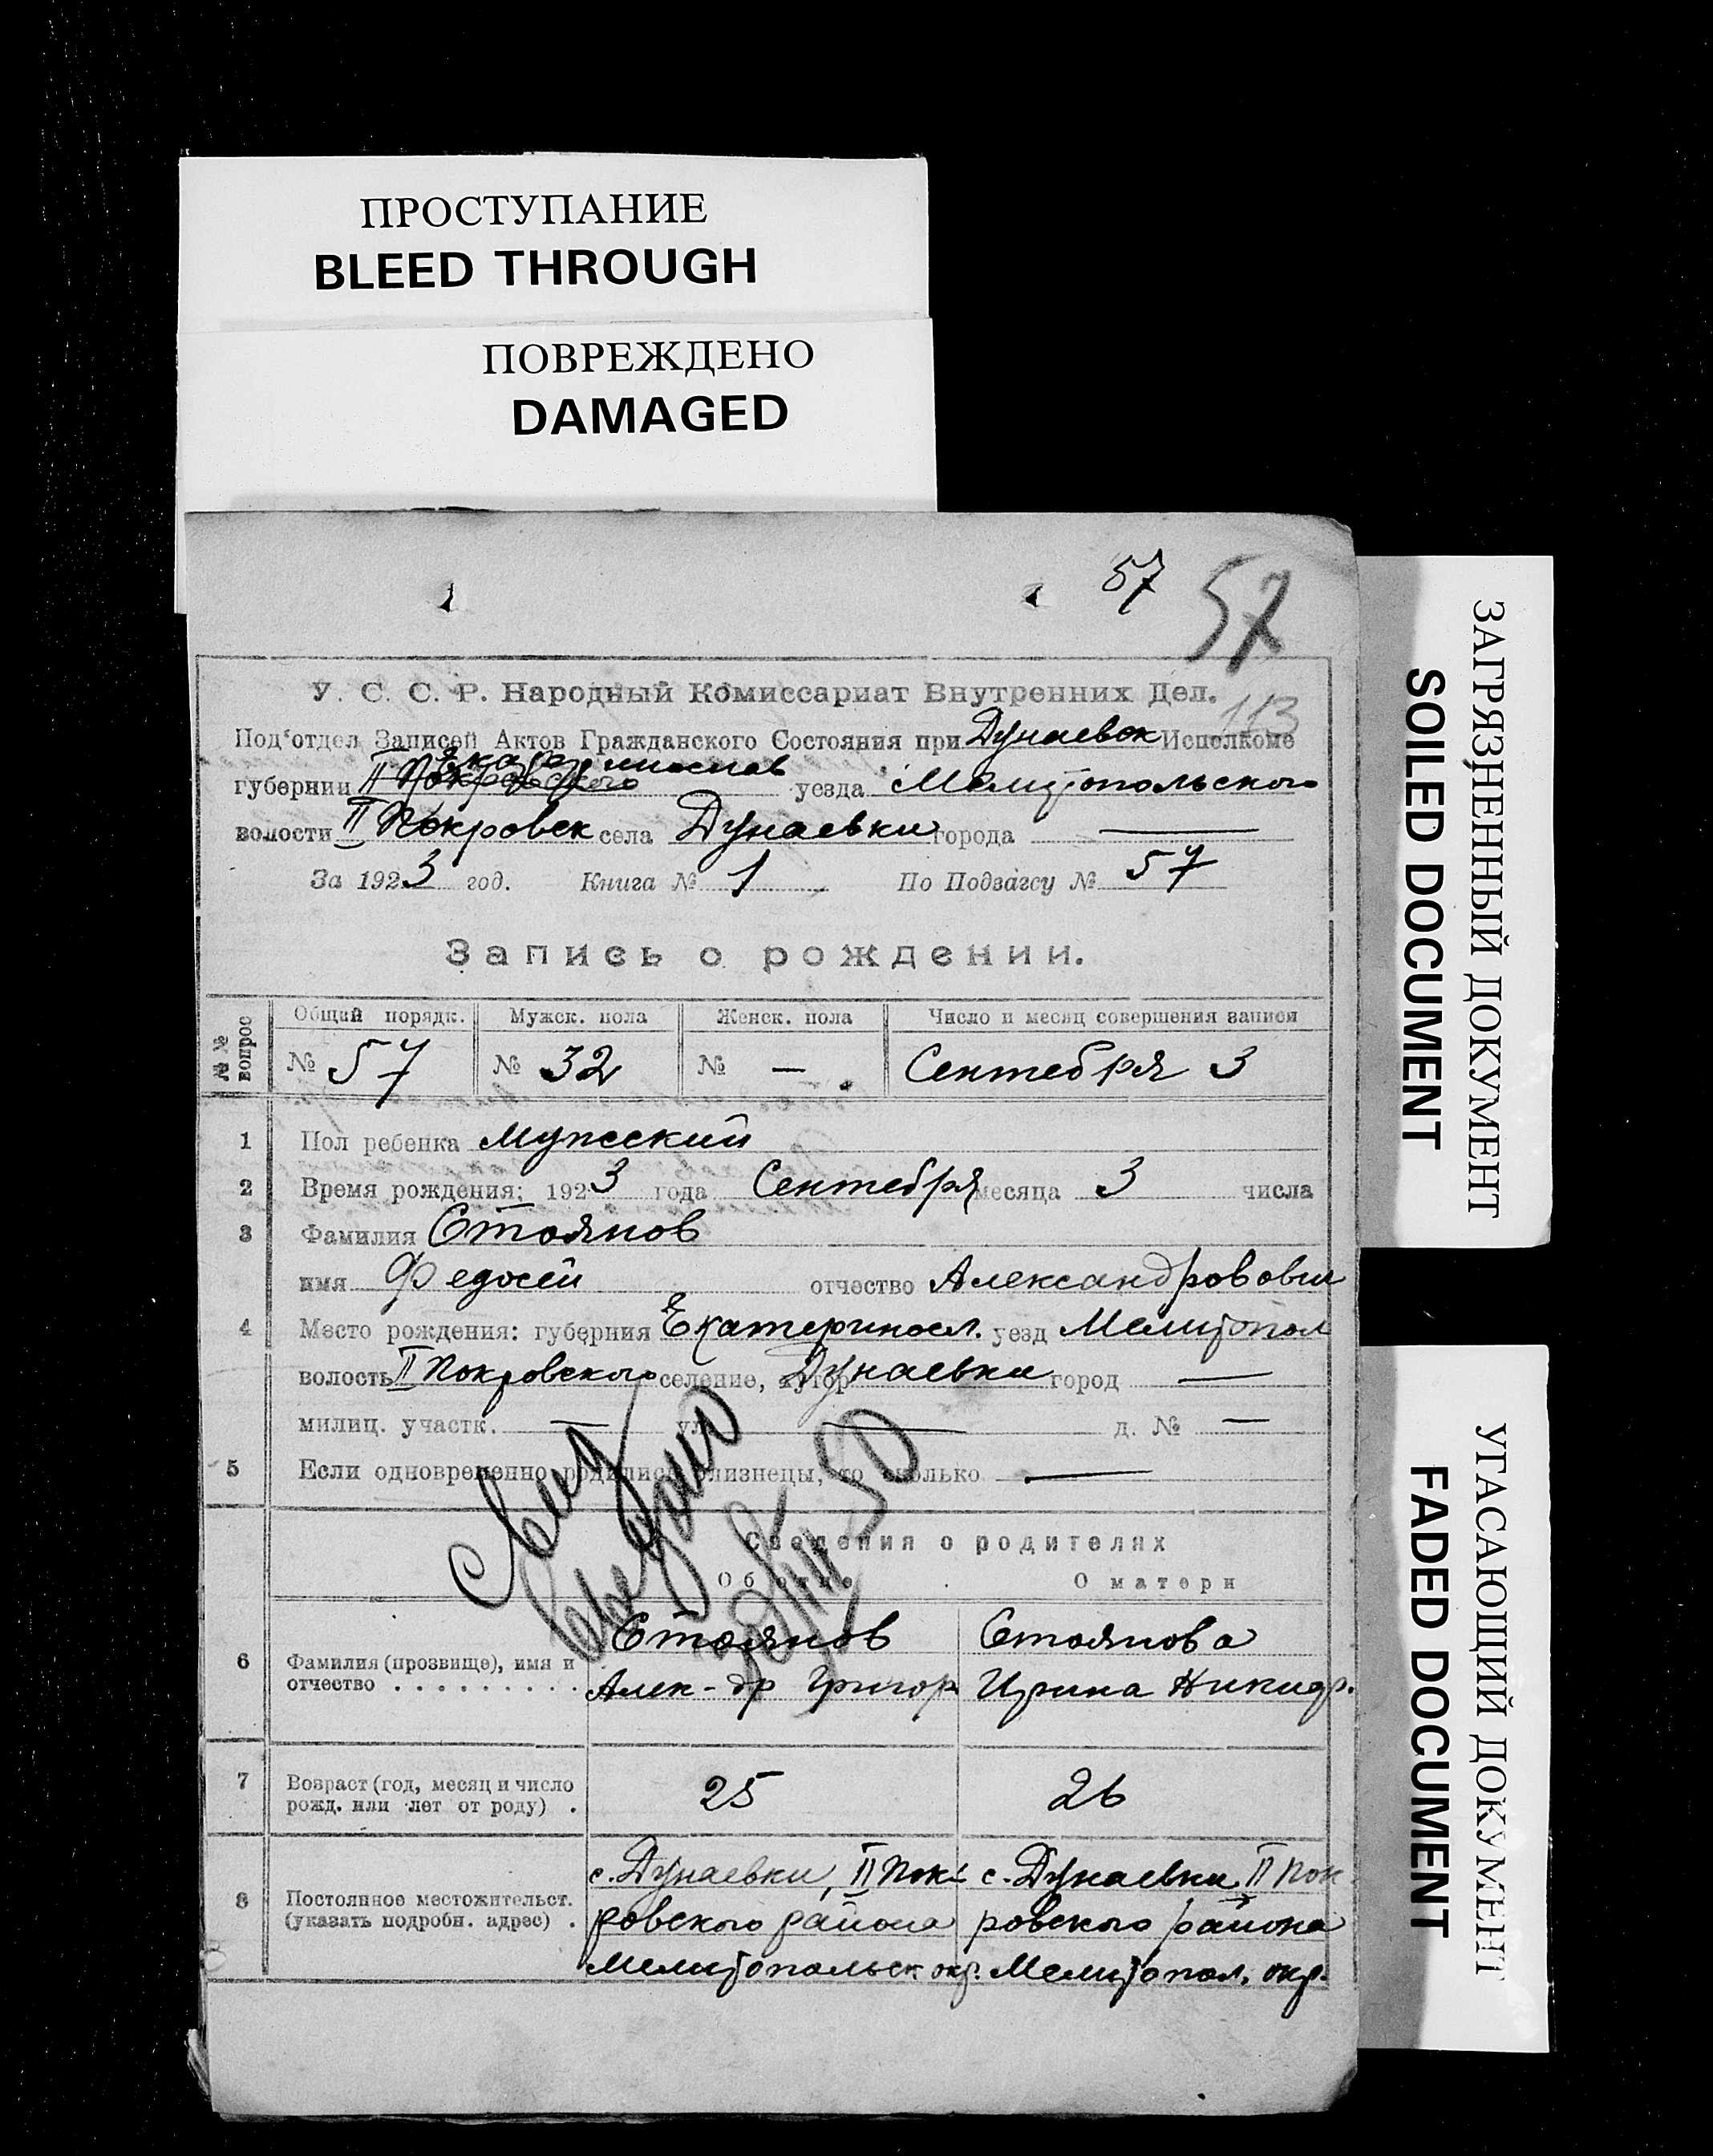 ПРОСТУПАНИЕ
BLEED THROUGH
ПОВРЕЖДЕНО
DAMAGED
57 57
У. С. С. Р. Народный Комиссариат Внутренних Дел.
113
Под'отдел Записей Актов Гражданского Состояния при Дунаевск Исполкоме
Екатеринослав
губернии II Покровского уезда Мелитопольского
волости II Покровск села Дунаевки города —
За 1923 год. Книга № 1 По Подзагсу № 57
Запись о рождении.
№ № вопрос
Общий порядк. Мужск. пола Женск. пола Число и месяц совершения записи
№ 57 № 32 № — Сентября 3
1 Пол ребенка Мужеский
2 Время рождения: 1923 года Сентября месяца 3 числа
3 Фамилия Стоянов
имя Федосей отчество Александрович
4 Место рождения: губерния Екатериносл. уезд Мелитопол
волость II Покровского селение, хутор Дунаевки город —
милиц. участк. — ул — д. № —
5 Если одновременно родились близнецы, то сколько —
Сведения о родителях
Об отце О матери
6 Фамилия (прозвище), имя и отчество . . . . . . . . .
Стоянов Стоянова
Алек-др Григор Ирина Никифр.
7 Возраст (год, месяц и число рожд. или лет от роду) .
25 26
8 Постоянное местожительст. (указать подробн. адрес) .
с. Дунаевки, II Пок- с. Дунаевки, II Пок-
ровского района ровского района
Мелитопольск окр. Мелитопол. окр.
ЗАГРЯЗНЕННЫЙ ДОКУМЕНТ
SOILED DOCUMENT
УГАСАЮЩИЙ ДОКУМЕНТ
FADED DOCUMENT